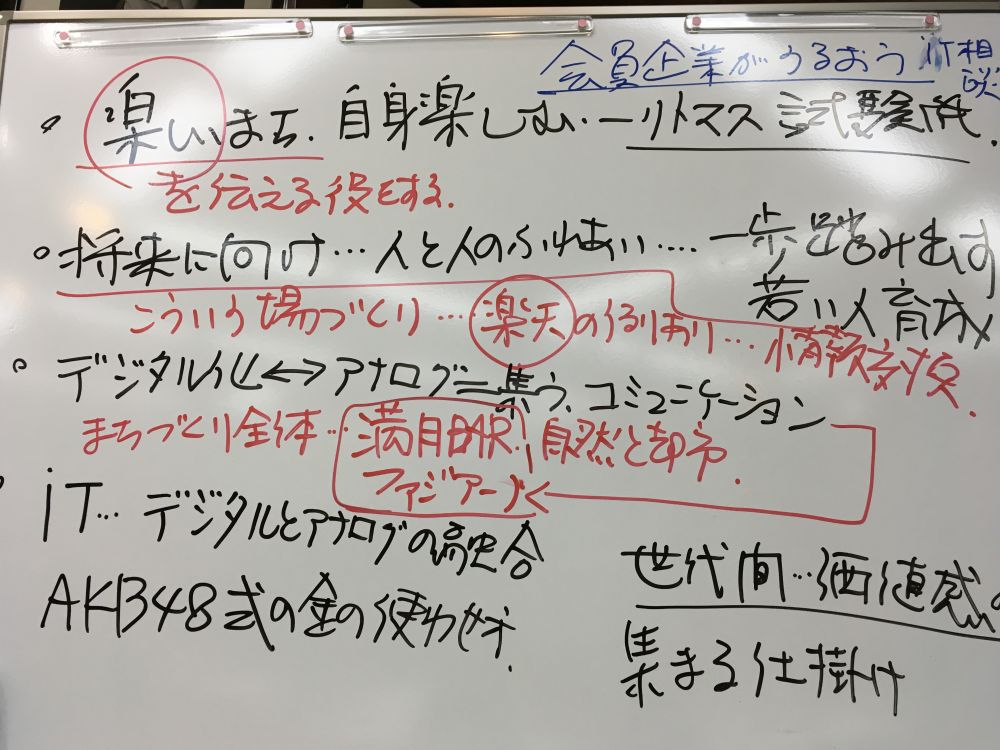 会員企業がうるおう IT相談
楽しいまち. 自身楽しむ.ーリトマス試験紙.
を伝える役をする.
将来に向け…人と人のふれあい…. 一歩踏み出す
若い人育成
こういう場づくり….楽天のうるおい…情報交換.
デジタル化↔アナログ=集う.コミュニケーション
まちづくり全体…満月BAR.自然と
ファジアーノ
iT…デジタルとアナログの融合
AKB48式の金の使わせ方.
世代間…価値感の
集まる仕掛け